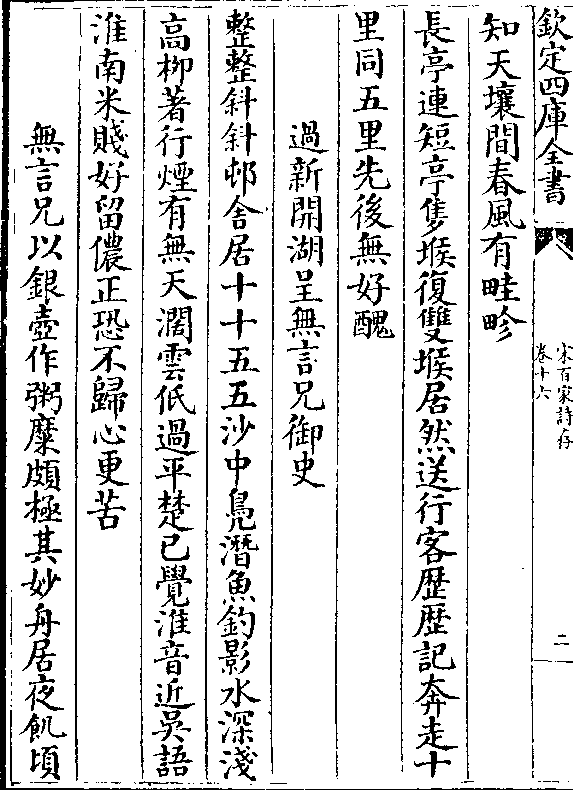 欽定四庫全書
宋百家詩存
卷十六
二
知天壤間春風有畦畛
長亭連短亭隻堠復雙堠居然送行客歴歴記奔走十
里同五里先後無好醜
過新開湖呈無言兄御史
整整斜斜邨舍居十十五五沙中鳬潛魚釣影水深淺
高柳著行煙有無天濶雲低過平楚已覺淮音近吳語
淮南米賤好留儂正恐不歸心更苦
無言兄以銀壺作粥糜頗極其妙舟居夜飢頃